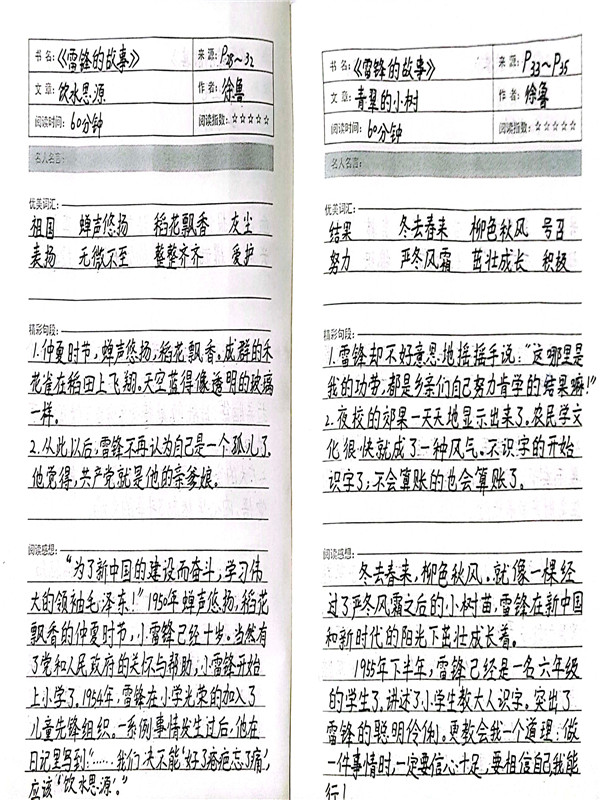 书 名：《雷锋的故事》 来 源：P28～32
文 章：饮水思源 作 者：徐鲁
阅读时间：60分钟 阅读指数：☆☆☆☆☆
名人名言：
优美词汇：
祖国 蝉声悠扬 稻花飘香 灰尘
表扬 无微不至 整整齐齐 爱护
精彩句段：
1.仲夏时节，蝉声悠扬，稻花飘香。成群的禾
花雀在稻田上飞翔。天空蓝得像透明的玻璃
一样。
2.从此以后，雷锋不再认为自己是一个孤儿了。
他觉得，共产党就是他的亲爹娘。
阅读感想：
“为了新中国的建设而奋斗，学习伟
大的领袖毛泽东！”1950年蝉声悠扬，稻花
飘香的仲夏时节，小雷锋已经十岁。当然有
了党和人民政府的关怀与帮助，小雷锋开始
上小学了。1954年，雷锋在小学光荣的加入了
儿童先锋组织。一系例事情发生过后，他在
日记里写到：“……我们决不能‘好了疮疤忘了痛’，
应该‘饮水思源’。”
书 名：《雷锋的故事》 来 源：P33～P35
文 章：青翠的小树 作 者：徐鲁
阅读时间：60分钟 阅读指数：☆☆☆☆☆
名人名言：
优美词汇：
结果 冬去春来 柳色秋风 号召
努力 严冬风霜 茁壮成长 积极
精彩句段：
1.雷锋却不好意思地摇摇手说：“这哪里是
我的功劳，都是乡亲们自己努力肯学的结果嘛！”
2.夜校的郊果一天天地显示出来了。农民学文
化很快就成了一种风气。不识字的开始
识字了；不会算账的也会算账了。
阅读感想：
冬去春来，柳色秋风。就像一棵经
过了严冬风霜之后的小树苗，雷锋在新中国
和新时代的阳光下茁壮成长着。
1955年下半年，雷锋已经是一名六年级
的学生了。讲述了小学生教大人识字。突出了
雷锋的聪明伶俐。更教会我一个道理：做
一件事情时，一定要信心十足，要相信自己我能
行！